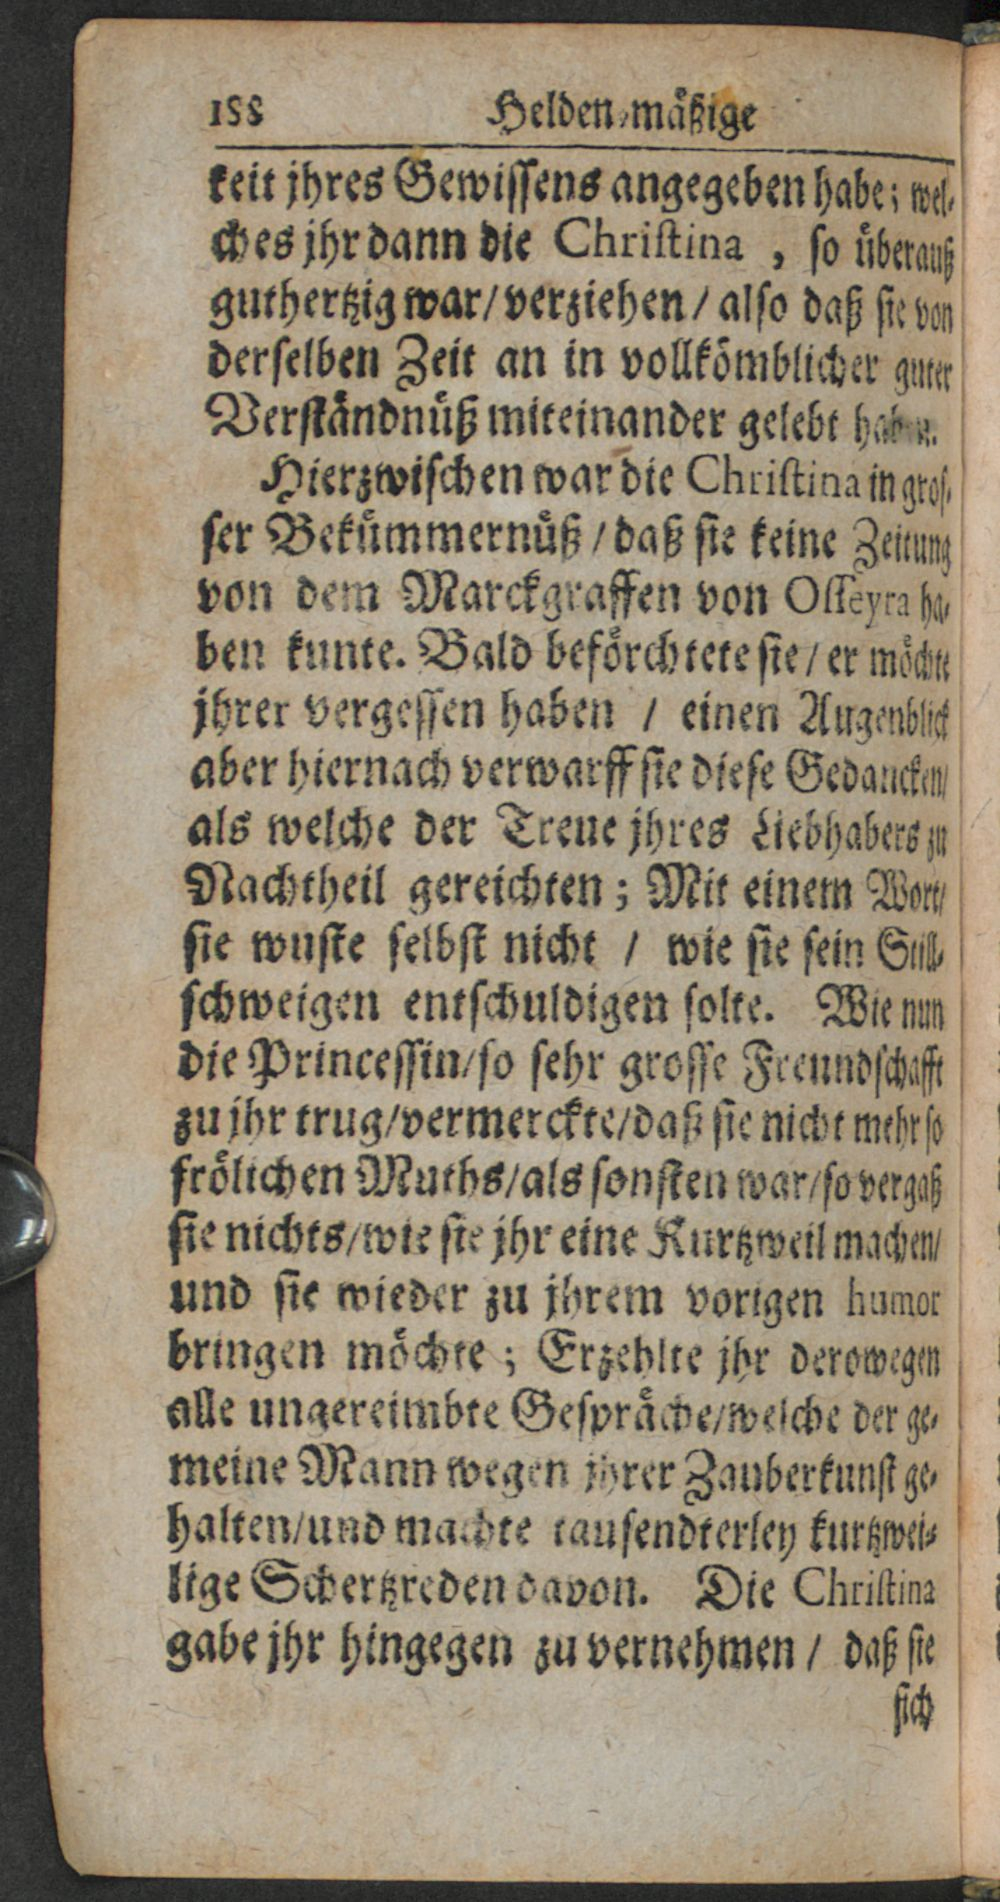 188 Helden-mäßige
keit jhres Gewissens angegeben habe; wel-
ches jhr dann die Christina, so überauß
guthertzig war/verziehen/also daß sie von
derselben Zeit an in vollkömblicher guter
Verständnüß miteinander gelebt haben.
Hierzwischen war die Christina in gros-
ser Bekümmernüß/daß sie keine Zeitung
von dem Marckgraffen von Osseyra ha-
ben kunte. Bald beförchtete sie/er möchte
jhrer vergessen haben / einen Augenblick
aber hiernach verwarff sie diese Gedancken/
als welche der Treue jhres Liebhabers zu
Nachtheil gereichten; Mit einem Wort/
sie wuste selbst nicht / wie sie sein Still-
schweigen entschuldigen solte. Wie nun
die Princessin/so sehr grosse Freundschafft
zu jhr trug/vermerckte/daß sie nicht mehr so
frölichen Muths/als sonsten war/so vergaß
sie nichts/wie sie jhr eine Kurtzweil machen/
und sie wieder zu jhrem vorigen humor
bringen möchte; Erzehlte jhr derowegen
alle ungereimbte Gespräche/welche der ge-
meine Mann wegen jhrer Zauberkunst ge-
halten/und machte tausendterley kurtzwei-
lige Schertzreden davon. Die Christina
gabe jhr hingegen zu vernehmen / daß sie
sich